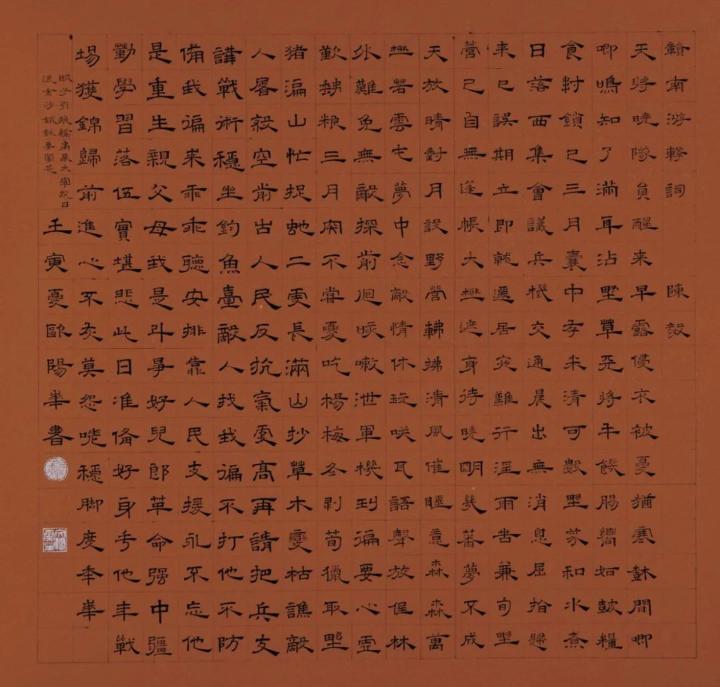 贛南游擊詞 陳毅
天將曉隊員醒來早露侵衣被夏猶寒樹間唧
唧鳴知了滿耳沾野草天將午餓腸響如鼓糧
食封鎖已三月囊中存米清可數野菜和水煮
日落西集會議兵機交通晨出無消息屈指歸
來已誤期立即就遷居夜難行淫雨苦兼旬野
營已自無篷帳大樹遮身待曉明幾番夢不成
天放晴對月設野營拂拂清風催睡意森森萬
樹若雲屯夢中念敵情休玩笑耳語聲放低林
外難免無敵探前回咳嗽泄軍機糾偏要心虛
歎缺糧三月肉不嘗夏吃楊梅冬剝筍獵取野
豬遍山忙捉蛇二更長滿山抄草木變枯焦敵
人屠殺空前古人民反抗氣更高再請把兵交
講戰術穩坐釣魚臺敵人找我偏不打他不防
備我偏來乖乖聽安排靠人民支援永不忘他
是重生親父母我是鬥爭好兒郎革命強中疆
勤學習落伍實堪悲此日准備好身手他年戰
場獲錦歸前進心不灰莫怨嗟穩腳度年華
壬寅夏歐陽華書